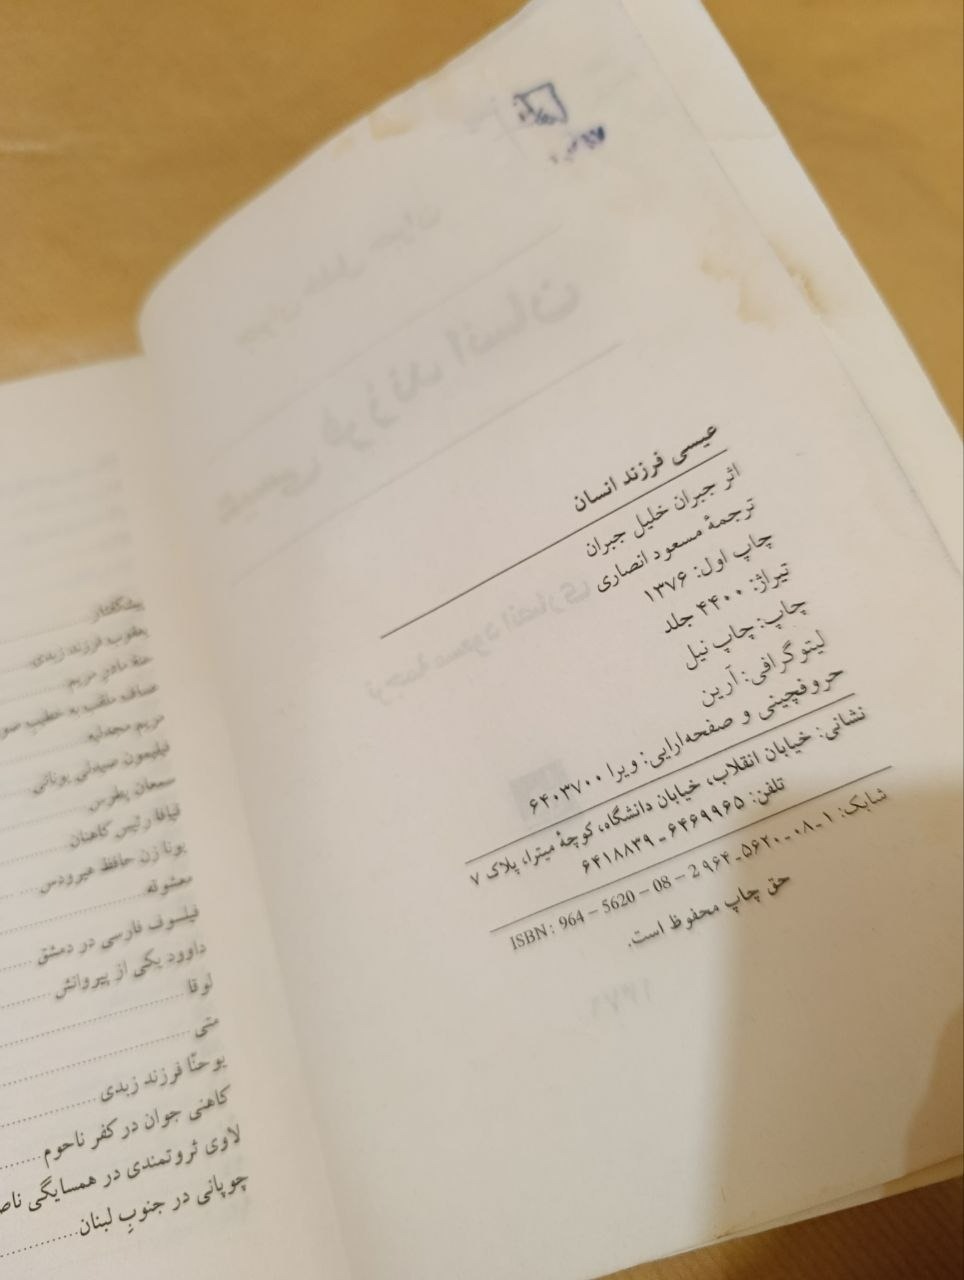 عیسی فرزند انسان
اثر جبران خلیل جبران
ترجمهٔ مسعود انصاری
چاپ اول: ۱۳۷۶
تیراژ: ۴۴۰۰ جلد
چاپ: چاپ نیل
لیتوگرافی: آرین
حروفچینی و صفحه‌آرایی: ویرا ۶۴۰۳۷۰۰
نشانی: خیابان انقلاب، خیابان دانشگاه، کوچهٔ میترا، پلاک ۷
تلفن: ۶۴۶۹۹۶۵ ـ ۶۴۱۸۸۳۹
شابک: ۱ـ۰۸ـ۵۶۲۰ـ۹۶۴
ISBN: 964 – 5620 – 08 – 2
حق چاپ محفوظ است.
پیشگفتار
یعقوب فرزند زبدی
حنّه مادر مریم
عساف ملقب به خطیب
مریم مجدلیه
فیلیمون صیدلی یونانی
سمعان پطرس
قیافا رئیس کاهنان
یونا زن حافظ هیرودس
فیلسوف فارسی در دمشق
داوود یکی از پیروانش
لوقا
متی
یوحنّا فرزند زبدی
کاهنی جوان در کفر ناحوم
لاوی ثروتمندی در همسایگی
چوپانی در جنوبِ لبنان